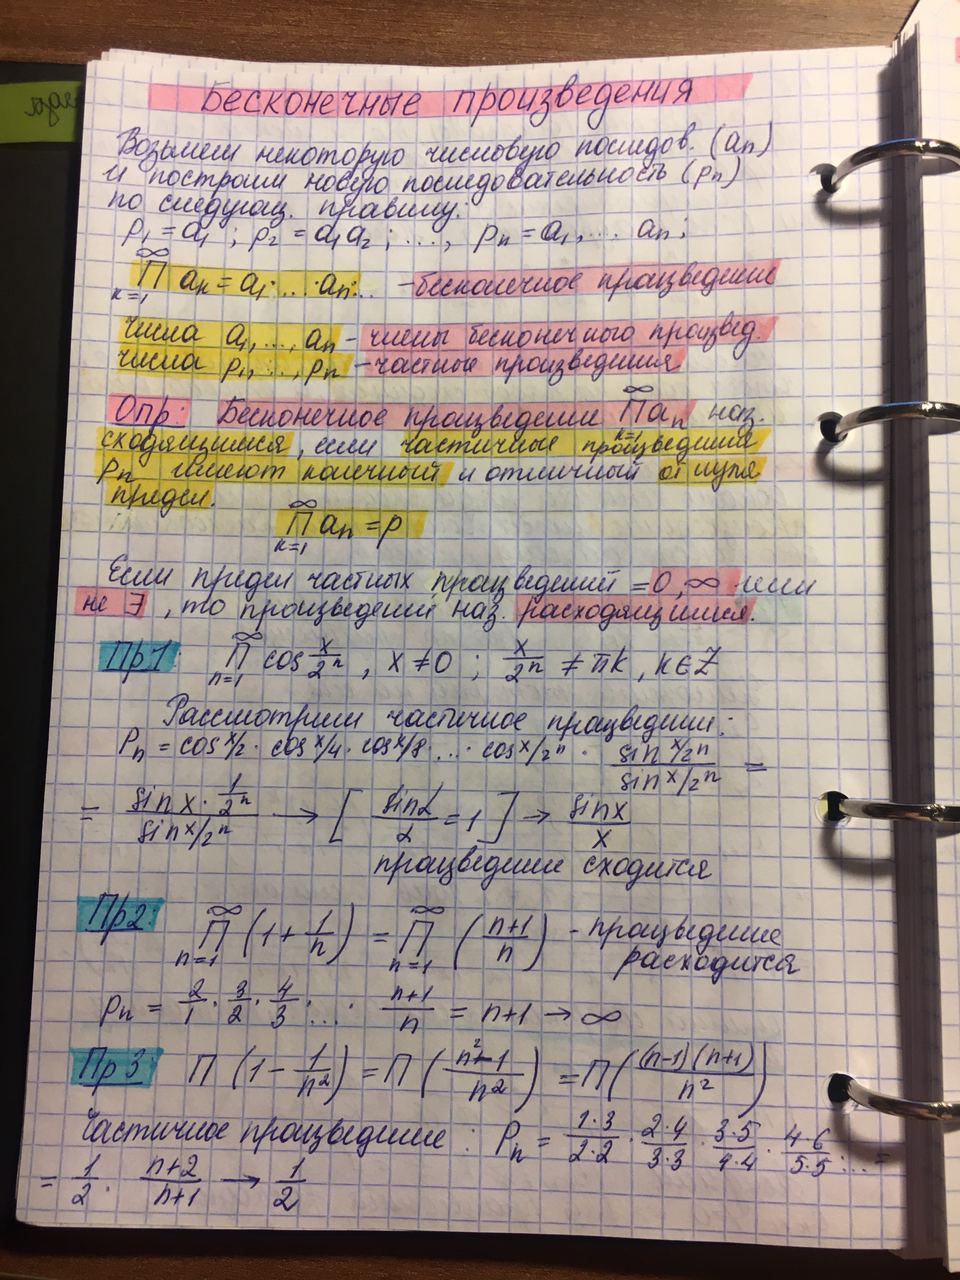 Бесконечные произведения
Возьмем некоторую числовую последов. (aₙ)
и построим новую последовательность (pₙ)
по следующ. правилу:
p₁ = a₁ ; p₂ = a₁a₂ ; ..., pₙ = a₁,... aₙ ;
∞ ∏ k=1 aₖ = a₁·...·aₙ·... – бесконечное произведение
числа a₁,..., aₙ – члены бесконечного произвед.
числа p₁,..., pₙ – частные произведения
Опр: Бесконечное произведение ∞ ∏ k=1 aₙ наз.
сходящимся, если частичные произведения
pₙ имеют конечный и отличный от нуля
предел.
∞ ∏ k=1 aₙ = p
Если предел частных произведений = 0, ∞ или
не ∃, то произведение наз. расходящимся.
Пр1: ∞ ∏ n=1 cos x/2ⁿ , x ≠ 0 ; x/2ⁿ ≠ πk , k ∈ Z
Рассмотрим частичное произведение:
Pₙ = cos x/2 · cos x/4 · cos x/8 · ... · cos x/2ⁿ · (sin x/2ⁿ)/(sin x/2ⁿ) =
= (sin x · 1/2ⁿ)/(sin x/2ⁿ) → [ sin α/α = 1 ] → sin x/x
произведение сходится
Пр2: ∞ ∏ n=1 (1 + 1/n) = ∞ ∏ n=1 ((n+1)/n) – произведение
расходится
pₙ = 2/1 · 3/2 · 4/3 · ... · (n+1)/n = n+1 → ∞
Пр3: ∏ (1 - 1/n²) = ∏ ((n²-1)/n²) = ∏ ((n-1)(n+1)/n²)
Частичное произведение : Pₙ = (1·3)/(2·2) · (2·4)/(3·3) · (3·5)/(4·4) · (4·6)/(5·5) ·... =
= 1/2 · (n+2)/(n+1) → 1/2